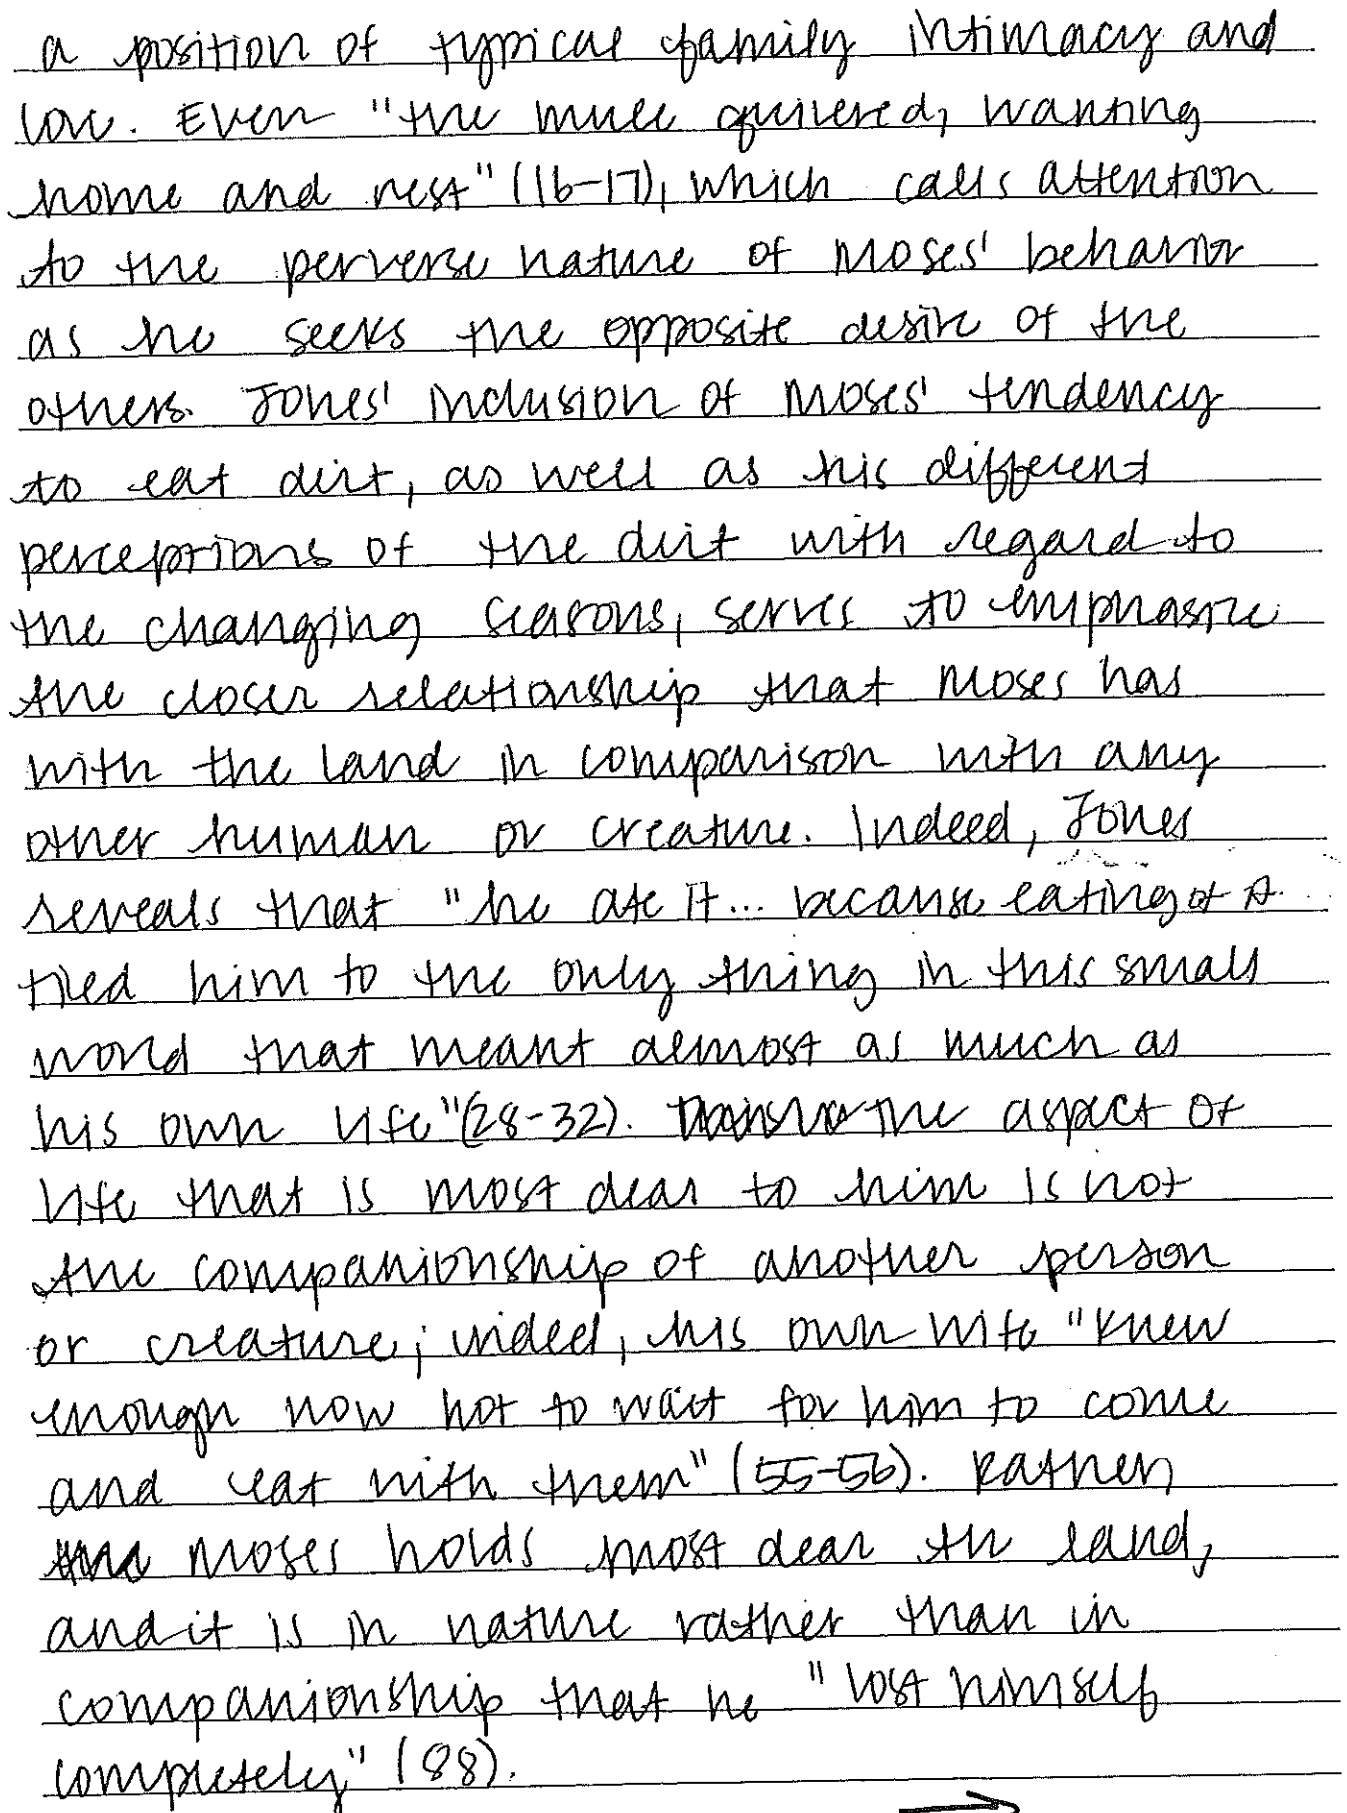 a position of typical family intimacy and
love. Even "the mule quivered, wanting
home and rest" (16-17), which calls attention
to the perverse nature of Moses' behavior
as he seeks the opposite desire of the
others. Jones' inclusion of Moses' tendency
to eat dirt, as well as his different
perceptions of the dirt with regard to
the changing seasons, serves to emphasize
the closer relationship that Moses has
with the land in comparison with any
other human or creature. Indeed, Jones
reveals that "he ate it... because eating of it
tied him to the only thing in this small
world that meant almost as much as
his own life" (28-32). The aspect of
life that is most dear to him is not
the companionship of another person
or creature; indeed, his own wife "knew
enough now not to wait for him to come
and eat with them" (55-56). Rather,
Moses holds most dear the land,
and it is in nature rather than in
companionship that he "lost himself
completely" (88).